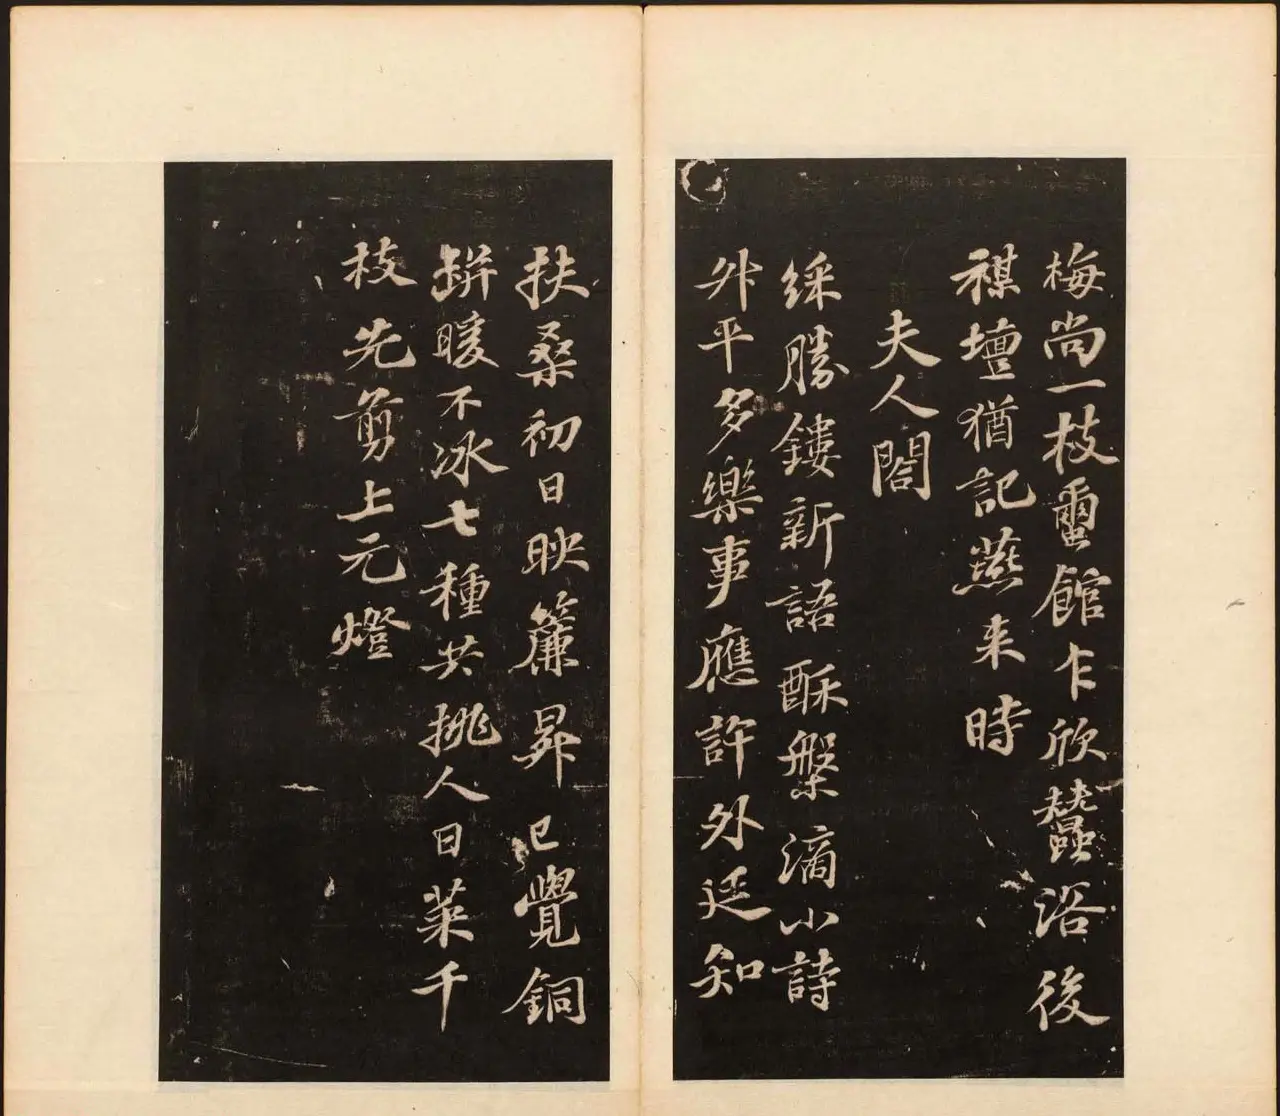 梅尚一枝蠒館乍欣蠶浴後
禖壇猶記燕來時
夫人閤
綵勝鏤新語酥槃滴小詩
升平多樂事應許外廷知
扶桑初日映簾昇已覺銅
缾暖不冰七種共挑人日菜千
枝先剪上元燈